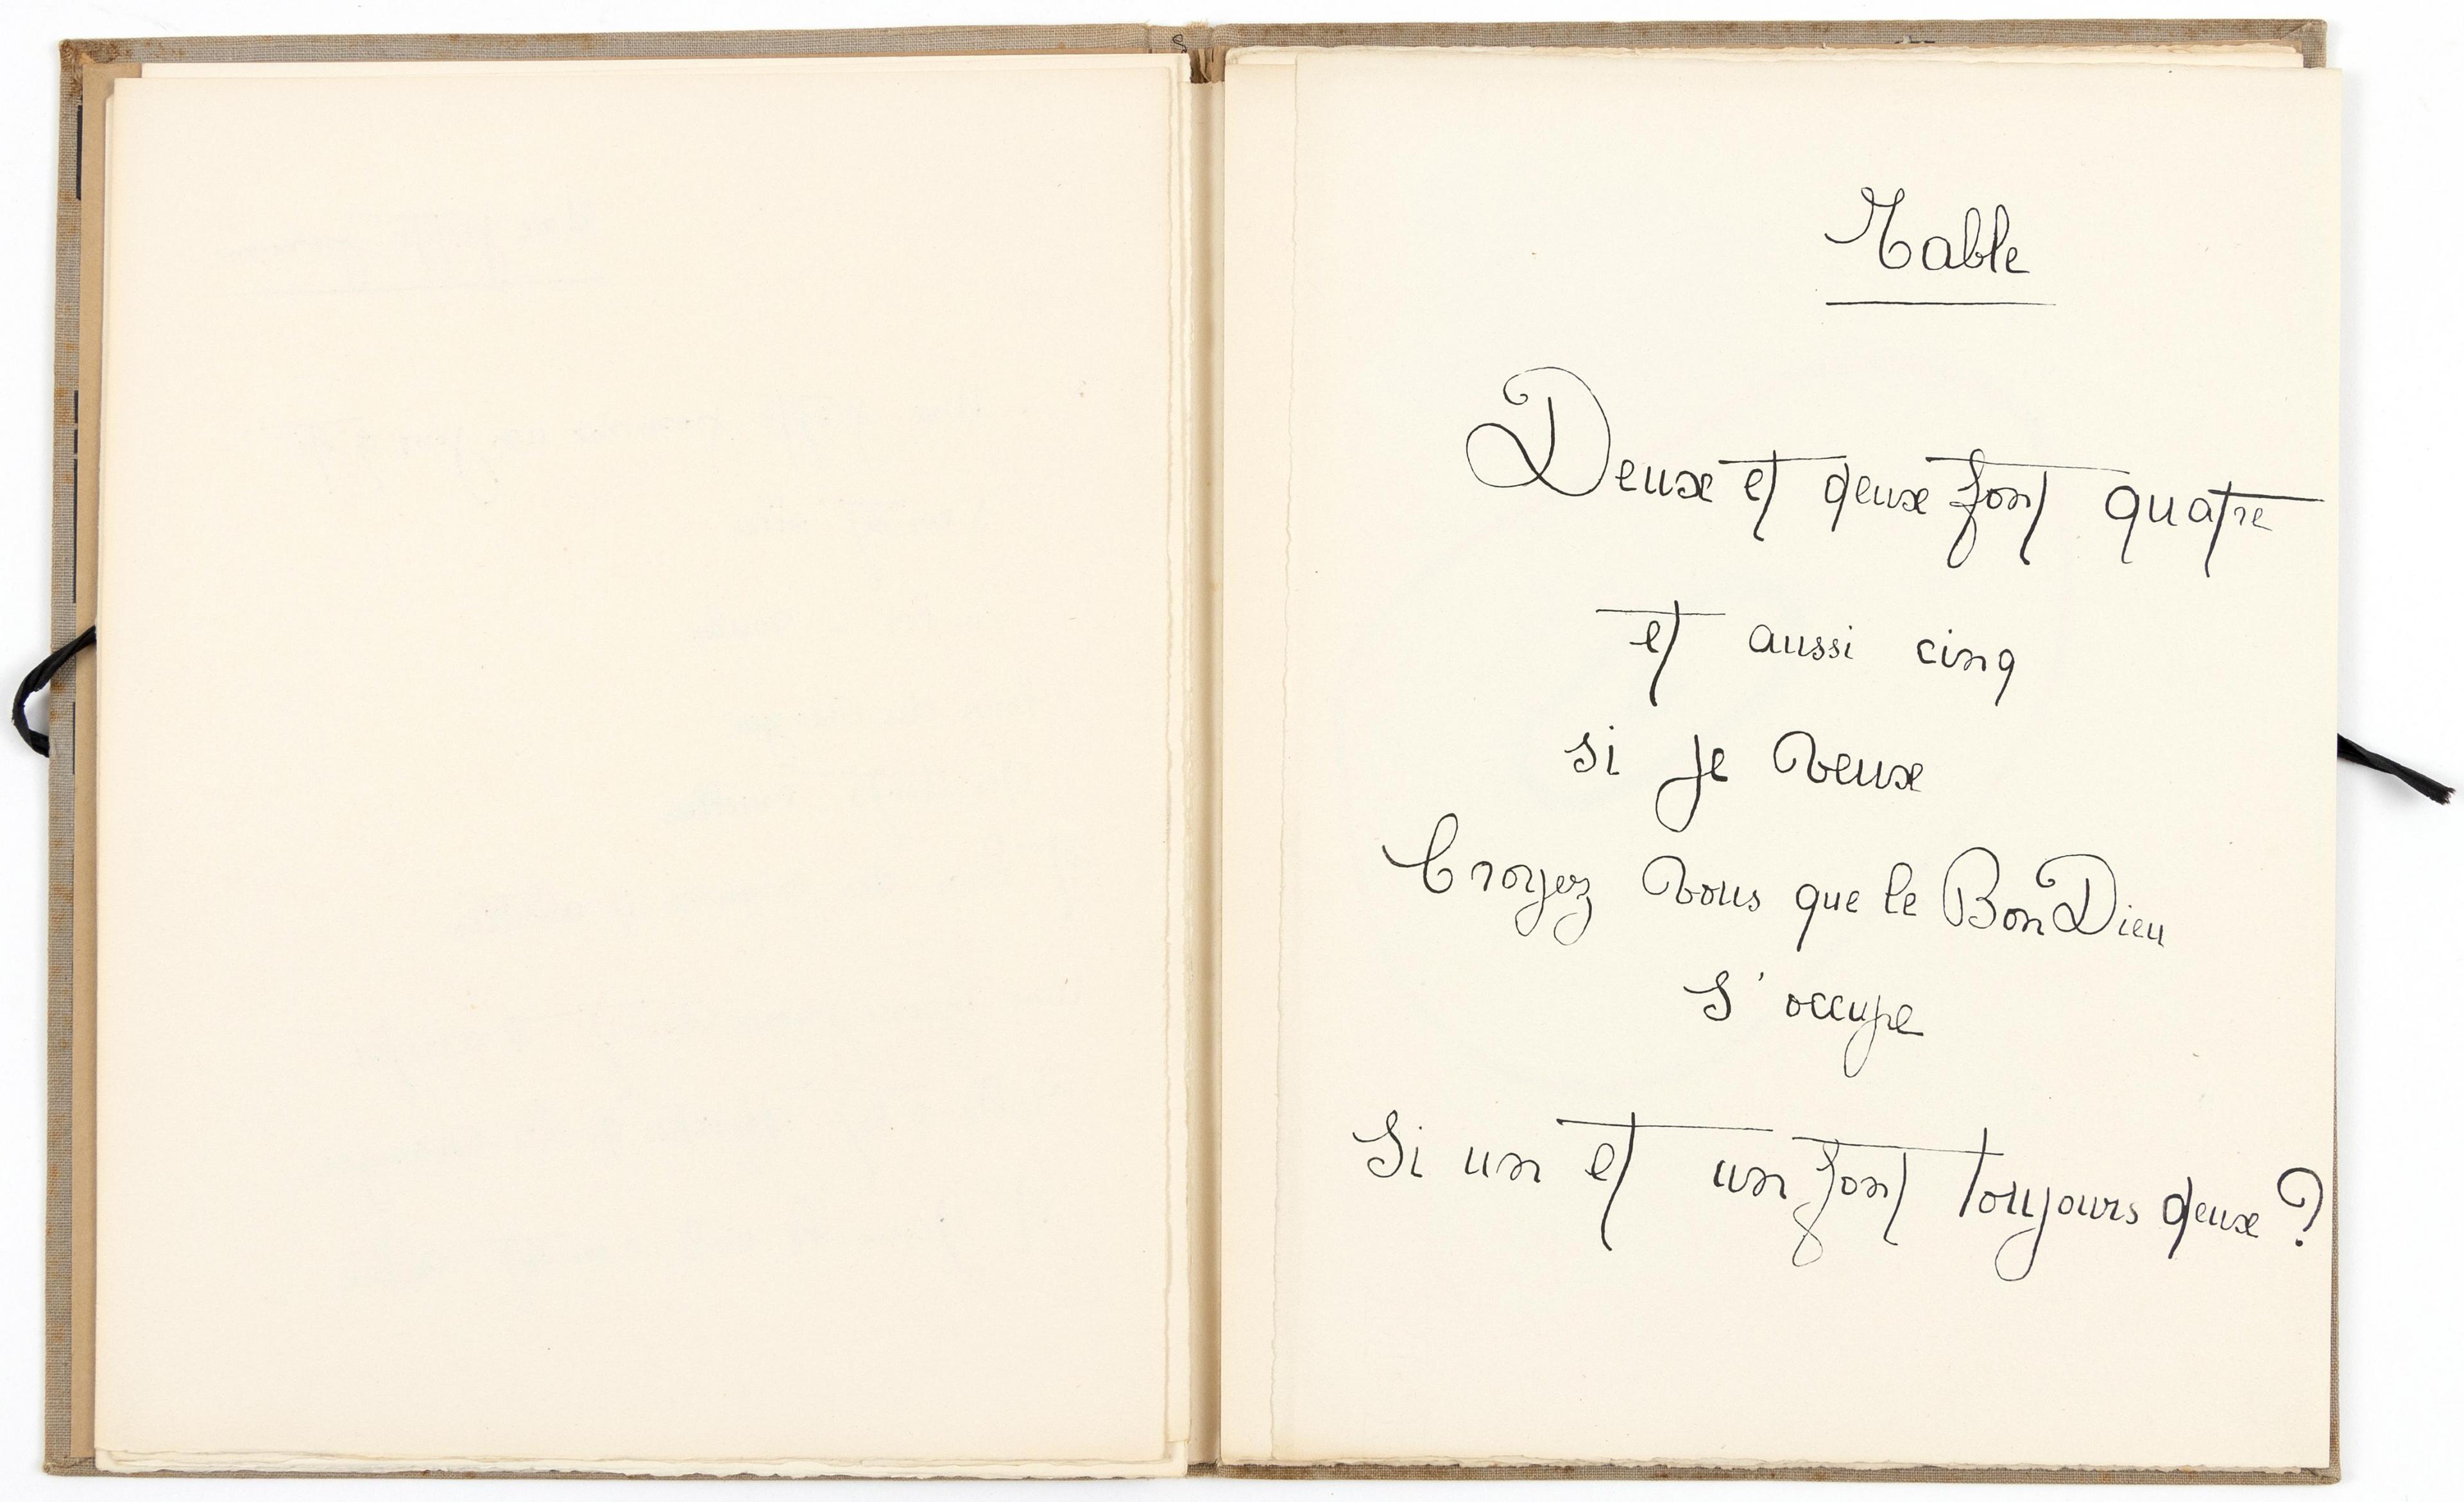 Table
Deux et deux font quatre
et aussi cinq
si je veux
Croyez vous que le Bon Dieu
s'occupe
Si un et un font toujours deux ?